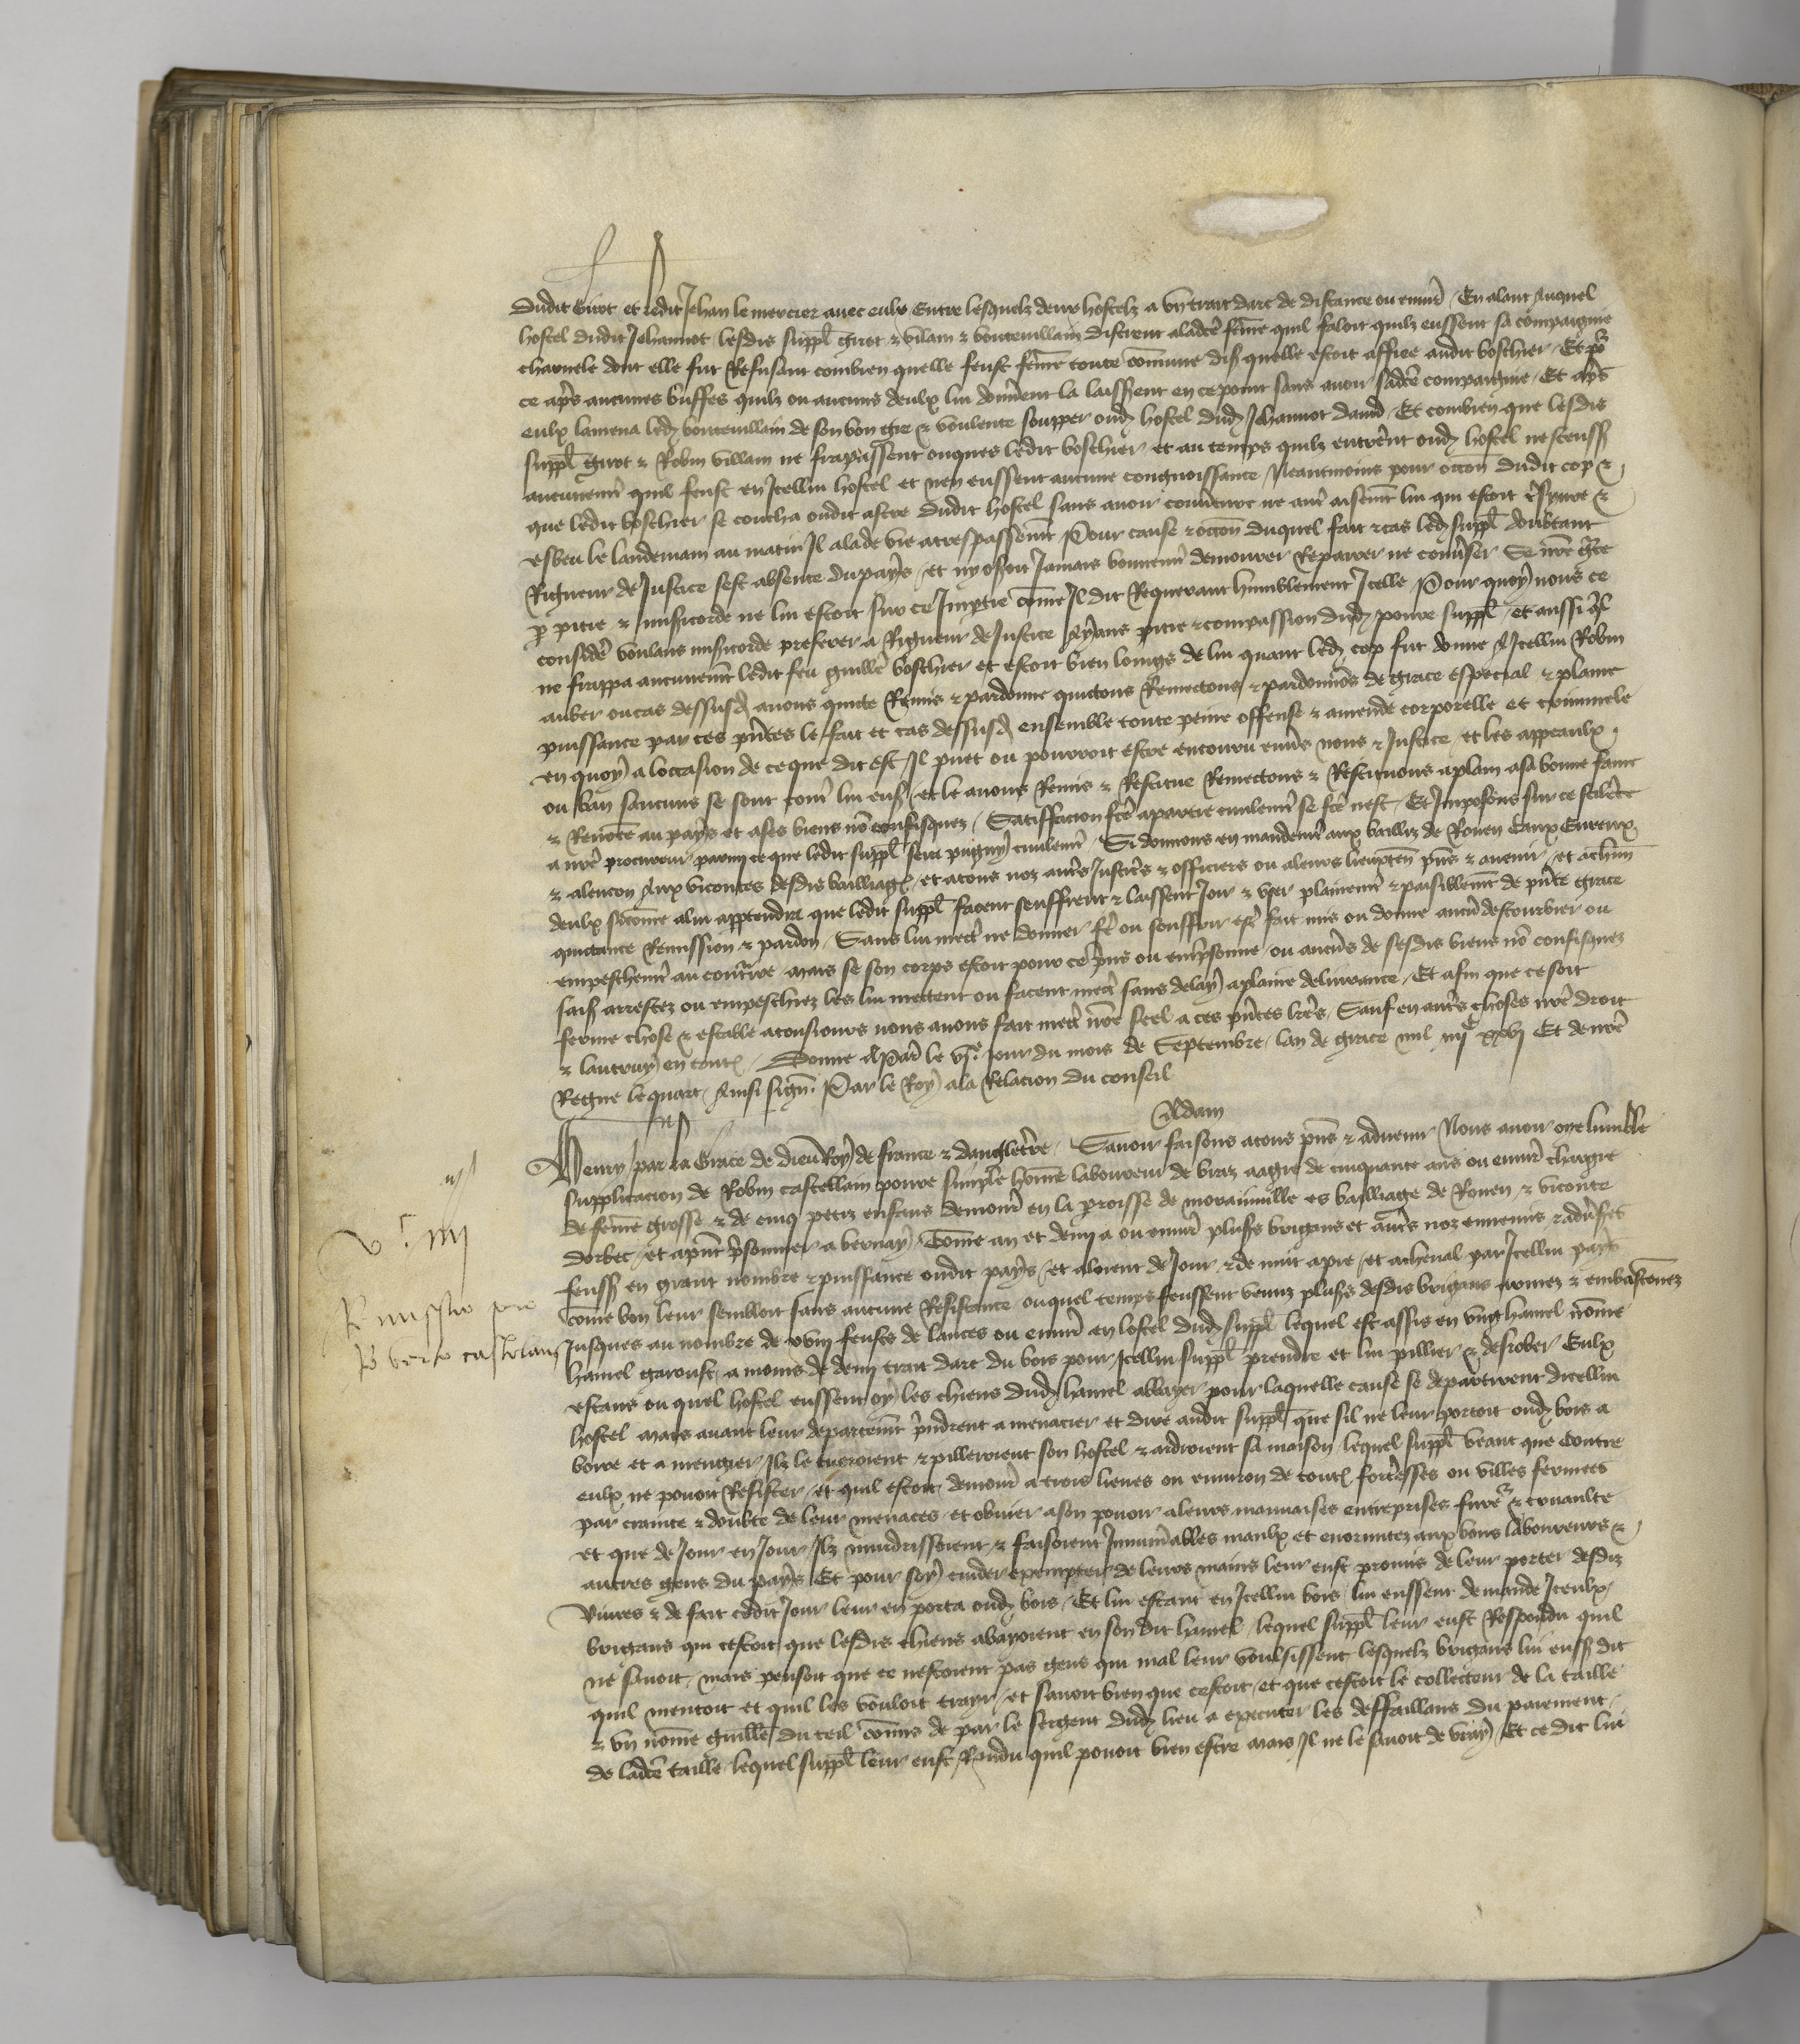 dudit Guiot et ledit Jehan le mercier avec eulx Entre lesquelz deux hostelz a un trait darc de distance ou envirõ En alant auquel
hostel dudit Jehannot lesdis suppl guiot & vilain & boutevillain disrent a ladcẽ fẽme quil faloit quilz eussent sa compaignie
charnele dont elle fut Refusant combien quelle feust fẽme toute cõmune dis quelle estoit affiee audit boschier Et põ
ce aprẽs aucunes buffes quilz ou aucuns deulx lui donnẽrent la laisserent en ce point sans avoir sadcẽ compaignie Et aprẽs
eulx lamena led boutevillain de son bon gre & voulente soupper oud hostel dud Jehannot david Et combien que lesdis
suppl guiot & Robin villain ne frapassent onques ledit boschier et au temps quilz entrẽrent oud hostel ne sceuss
aucunemt quil feust en Icellui hostel et nen eussent aucune congnoissance Neantmoins pour occõn dudit cop &
que ledit boschier se coucha oudit astre dudit hostel sans avoir couverture ne autre aisemt lui qui estoit &
esbeu le landemain au matin Il ala de vie a trespassemt Pour cause & occõn duquel fait & cas led suppl doubtant
Rigueur de Justice sest absente du pays et ny oseroit Jamais bonnemt demourer Reparer ne converser Se nrẽ grace
pitie & misericorde ne lui estoit sur ce Impartie cõme Il dit Requerant humblement Icelle Pour quoy nous ce
considerẽ voulans misericorde preferer a Rigueur de Justice Ayans pitie & compassion dud povre suppl et aussi ql
ne frappa aucunemt ledit feu guillẽ boschier et estoit bien loings de lui quant led cop fut donne A Icellui Robin
auber ou cas dessusd avons quite Remis & pardonne quictons Remectons & pardonnons de grace especial & plaine
puissance par ces pñtes le fait et cas dessusd ensemble toute peine offense & amende corporelle et criminele
en quoy a loccasion de ce que dit est Il puet ou pourroit estre encouru envers nous & Justice et les appeaulx
ou ban saucuns se sont contre lui ens et le avons Remis & Restitue Remectons & Restituons a plain a sa bonne fame
& Renõmee au pays et a ses biens nõ confisquez Satisfacion fcẽ a partie civilemt se fcẽ nest Et Imposons sur ce scilence
a nrẽ procureur parmy ce que ledit suppl sera pugny civilemt Si donnons en mandemt aux bailliz de Rouen Caux Evreux
& alencon Aux vicontes desdis bailliages et a tous noz autrẽs Justiciers & officiers ou a leurs lieuxtenans pñs & avenir et a chũn
deulx sicõme a lui appartendra que ledit suppl facent seuffrent & laissent Joir & user plainemt & paisiblemt de pñte grace
quictance Remission & pardon Sans lui mectrẽ ne donner ne souffrir estre fait mis ou donne aucũ destourbier ou
empeschemt au contraire mais se son corps estoit pour ce prins ou emprisonne ou aucuns de sesdis biens nõ confisquez
sais arrestez ou empeschiez les lui mettent ou facent mectrẽ sans delay a plaine delivrance Et afin que ce soit
ferme chose & estable a tousjours nous avons fait mectrẽ nrẽ seel a ces pñtes lrẽs Sauf en autres choses nrẽ droit
& lautruy en toutes Donne A Paris le vjẽ Jour du mois de Septembre lan de grace mil iiijc xxvj Et de nrẽ
Regne le quart Ainsi signẽ Par le Roy a la Relacion du conseil
Adam
Henry par la Grace de dieu Roy de france & dangleterre Savoir faisons a tous pñs & advenir Nous avoir oye lumble
supplicacion de Robin castellain povre simple hõme laboureur de braz aagie de cinquante ans ou envirõ chargie
de fẽme grosse & de cinq petiz enfans demourant en la paroisse de morainville es bailliage de Rouen & viconte
dorbec et apñt prisonnier a bernay Cõme an et demi a ou envirõ plusrs brigans et autrẽs noz ennemis & advẽrses
feuss en grant nombre & puissance oudit pays et aloient de Jour & de nuit a pie et a cheval par Icellui pays
cõme bon leur sembloit sans aucune Resistance ouquel temps feussent venuz plusrs desdis brigans armez & embastonnez
Jusques au nombre de xviij feustz de lances ou envirõ en lostel dud suppl lequel est assis en ung hamel nõme
hamel garoust a moins de demi trait darc du bois pour Icellui suppl prendre et lui pillier & desrober Eulx
estans ouquel hostel eussent oy les chiens dud hamel abbayer pour laquelle cause se departirent dicellui
hostel mais avant leur departemt prindrent a menacier et dire audit suppl que sil ne leur portoit oud bois a
boire et a mengier Ilz le tueroient & pilleroient son hostel & ardroient sa maison lequel suppl veant que Contre
eulx ne povoit Resister et quil estoit demourant a trois lieues ou environ de toutes forteresses ou villes fermees
par crainte & doubte de leur menaces et obvier a son povoir a leurs mauvaises entreprises fureur & cruaulte
et que de Jour en Jour Ilz murdrissoient & faisoient Innumẽrables maulx et enormitez aux bons laboureurs &
autres gens du pays Et pour soy cuider exempter de leurs mains leur eust promis de leur porter desdiz
vivres & de fait cedit Jour leur en porta oud bois Et lui estant en Icellui bois lui eussent demande Iceulx
brigans qui cestoit que lesdis chiens abayoient en son dit hamel lequel suppl leur eust Respondu quil
ne savoit mais pensoit que ce nestoient pas gens qui mal leur voulsissent lesquelz brigans lui euss dit
quil mentoit et quil les vouloit trayr et savoit bien que cestoit et que cestoit le collecteur de la taille
& un nõme guillẽ du teil cõmis de par le sergent dud lieu a executer les deffaillans du paiement
de ladcẽ taille lequel suppl leur eust Rendu quil povoit bien estre mais Il ne le savoit de vray Et ce dit lui
Remissio pro
Roberto castellano